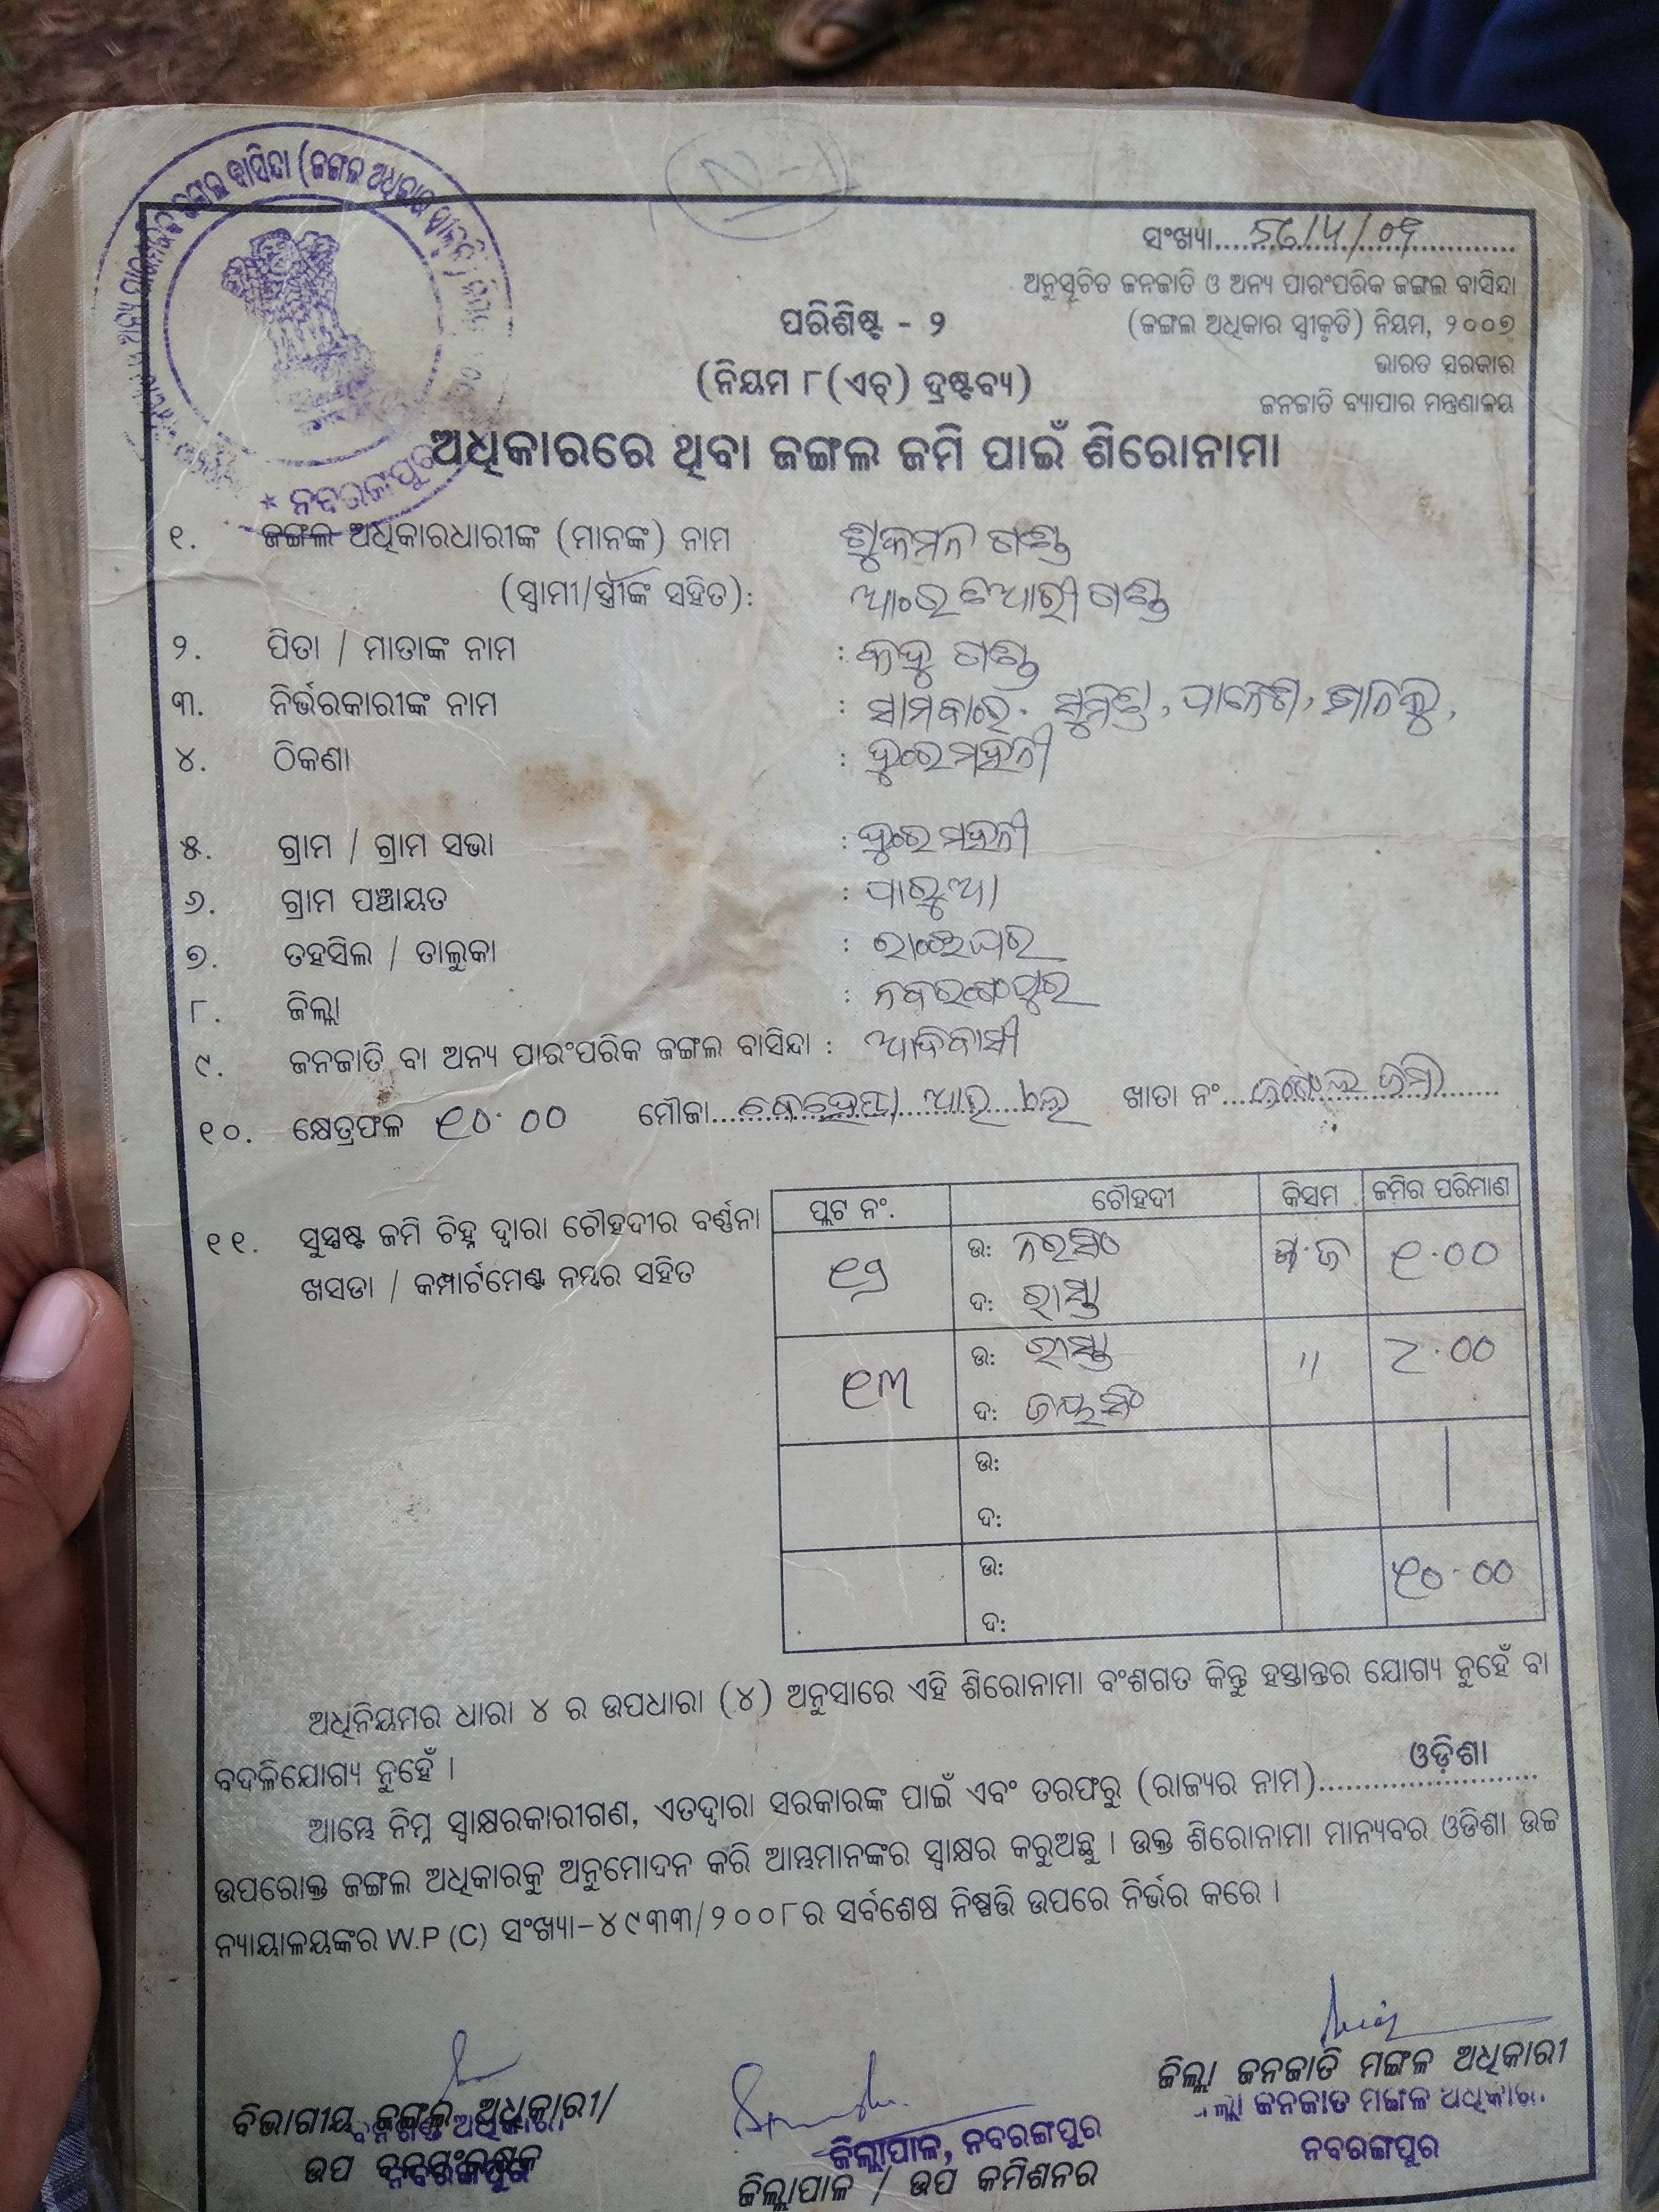 ନବରଙ୍ଗପୁର
ସଂଖ୍ୟା
ଅନୁସୂଚିତ ଜନଜାତି ଓ ଅନ୍ୟ ପାରଂପରିକ ଜଙ୍ଗଲ ବାସିନ୍ଦା
(ଜଙ୍ଗଲ ଅଧିକାର ସ୍ୱୀକୃତି) ନିୟମ, ୨୦୦୭
ଭାରତ ସରକାର
ଜନଜାତି ବ୍ୟାପାର ମନ୍ତ୍ରଣାଳୟ
ପରିଶିଷ୍ଟ - ୨
(ନିୟମ ୮(ଏଚ୍) ଦ୍ରଷ୍ଟବ୍ୟ)
ଅଧିକାରରେ ଥିବା ଜଙ୍ଗଲ ଜମି ପାଇଁ ଶିରୋନାମା
୧. ଜଙ୍ଗଲ ଅଧିକାରଧାରୀଙ୍କ (ମାନଙ୍କ) ନାମ ଶୁକମନ ଗଣ୍ଡ
(ସ୍ୱାମୀ/ସ୍ତ୍ରୀଙ୍କ ସହିତ): ଗଣ୍ଡ
୨. ପିତା / ମାତାଙ୍କ ନାମ : ଗଣ୍ଡ
୩. ନିର୍ଭରକାରୀଙ୍କ ନାମ : ସାମବାରେ
୪. ଠିକଣା :
୫. ଗ୍ରାମ / ଗ୍ରାମ ସଭା :
୬. ଗ୍ରାମ ପଞ୍ଚାୟତ : ପାରୁଆ
୭. ତହସିଲ / ତାଲୁକା : ରାଇଘର
୮. ଜିଲ୍ଲା : ନବରଙ୍ଗପୁର
୯. ଜନଜାତି ବା ଅନ୍ୟ ପାରଂପରିକ ଜଙ୍ଗଲ ବାସିନ୍ଦା : ଆଦିବାସୀ
୧୦. କ୍ଷେତ୍ରଫଳ ୧୦.୦୦ ମୌଜା ଖାତା ନଂ ଜଙ୍ଗଲ ଜମି
୧୧. ସୁସ୍ପଷ୍ଟ ଜମି ଚିହ୍ନ ଦ୍ୱାରା ଚୌହଦୀର ବର୍ଣ୍ଣନା
ଖସଡା / କମ୍ପାର୍ଟମେଣ୍ଟ ନମ୍ବର ସହିତ
ପ୍ଲଟ ନଂ. ଚୌହଦୀ କିସମ ଜମିର ପରିମାଣ
ଉ: ନରସିଂ ୧.୦୦
ଦ: ରାସ୍ତା
୧୩ ଉ: ରାସ୍ତା " .୦୦
ଦ: ଜୟସିଂ
ଉ:
ଦ:
ଉ: ୧୦.୦୦
ଦ:
ଅଧିନିୟମର ଧାରା ୪ ର ଉପଧାରା (୪) ଅନୁସାରେ ଏହି ଶିରୋନାମା ବଂଶଗତ କିନ୍ତୁ ହସ୍ତାନ୍ତର ଯୋଗ୍ୟ ନୁହେଁ ବା
ବଦଳିଯୋଗ୍ୟ ନୁହେଁ ।
ଆମ୍ଭେ ନିମ୍ନ ସ୍ୱାକ୍ଷରକାରୀଗଣ, ଏତଦ୍ୱାରା ସରକାରଙ୍କ ପାଇଁ ଏବଂ ତରଫରୁ (ରାଜ୍ୟର ନାମ) ଓଡ଼ିଶା
ଉପରୋକ୍ତ ଜଙ୍ଗଲ ଅଧିକାରକୁ ଅନୁମୋଦନ କରି ଆମ୍ଭମାନଙ୍କର ସ୍ୱାକ୍ଷର କରୁଅଛୁ । ଉକ୍ତ ଶିରୋନାମା ମାନ୍ୟବର ଓଡିଶା ଉଚ୍ଚ
ନ୍ୟାୟାଳୟଙ୍କର W.P (C) ସଂଖ୍ୟା-୪୯୩୩/୨୦୦୮ର ସର୍ବଶେଷ ନିଷ୍ପତ୍ତି ଉପରେ ନିର୍ଭର କରେ ।
ଜିଲ୍ଲା ଜନଜାତି ମଙ୍ଗଳ ଅଧିକାରୀ
ଜିଲ୍ଲା ଜନଜାତି ମଙ୍ଗଳ ଅଧିକାରୀ
ନବରଙ୍ଗପୁର
ବିଭାଗୀୟ ଜଙ୍ଗଲ ଅଧିକାରୀ/
ଉପ ବନସଂରକ୍ଷକ
ନବରଙ୍ଗପୁର
ଜିଲ୍ଲାପାଳ, ନବରଙ୍ଗପୁର
ଜିଲ୍ଲାପାଳ / ଉପ କମିଶନର